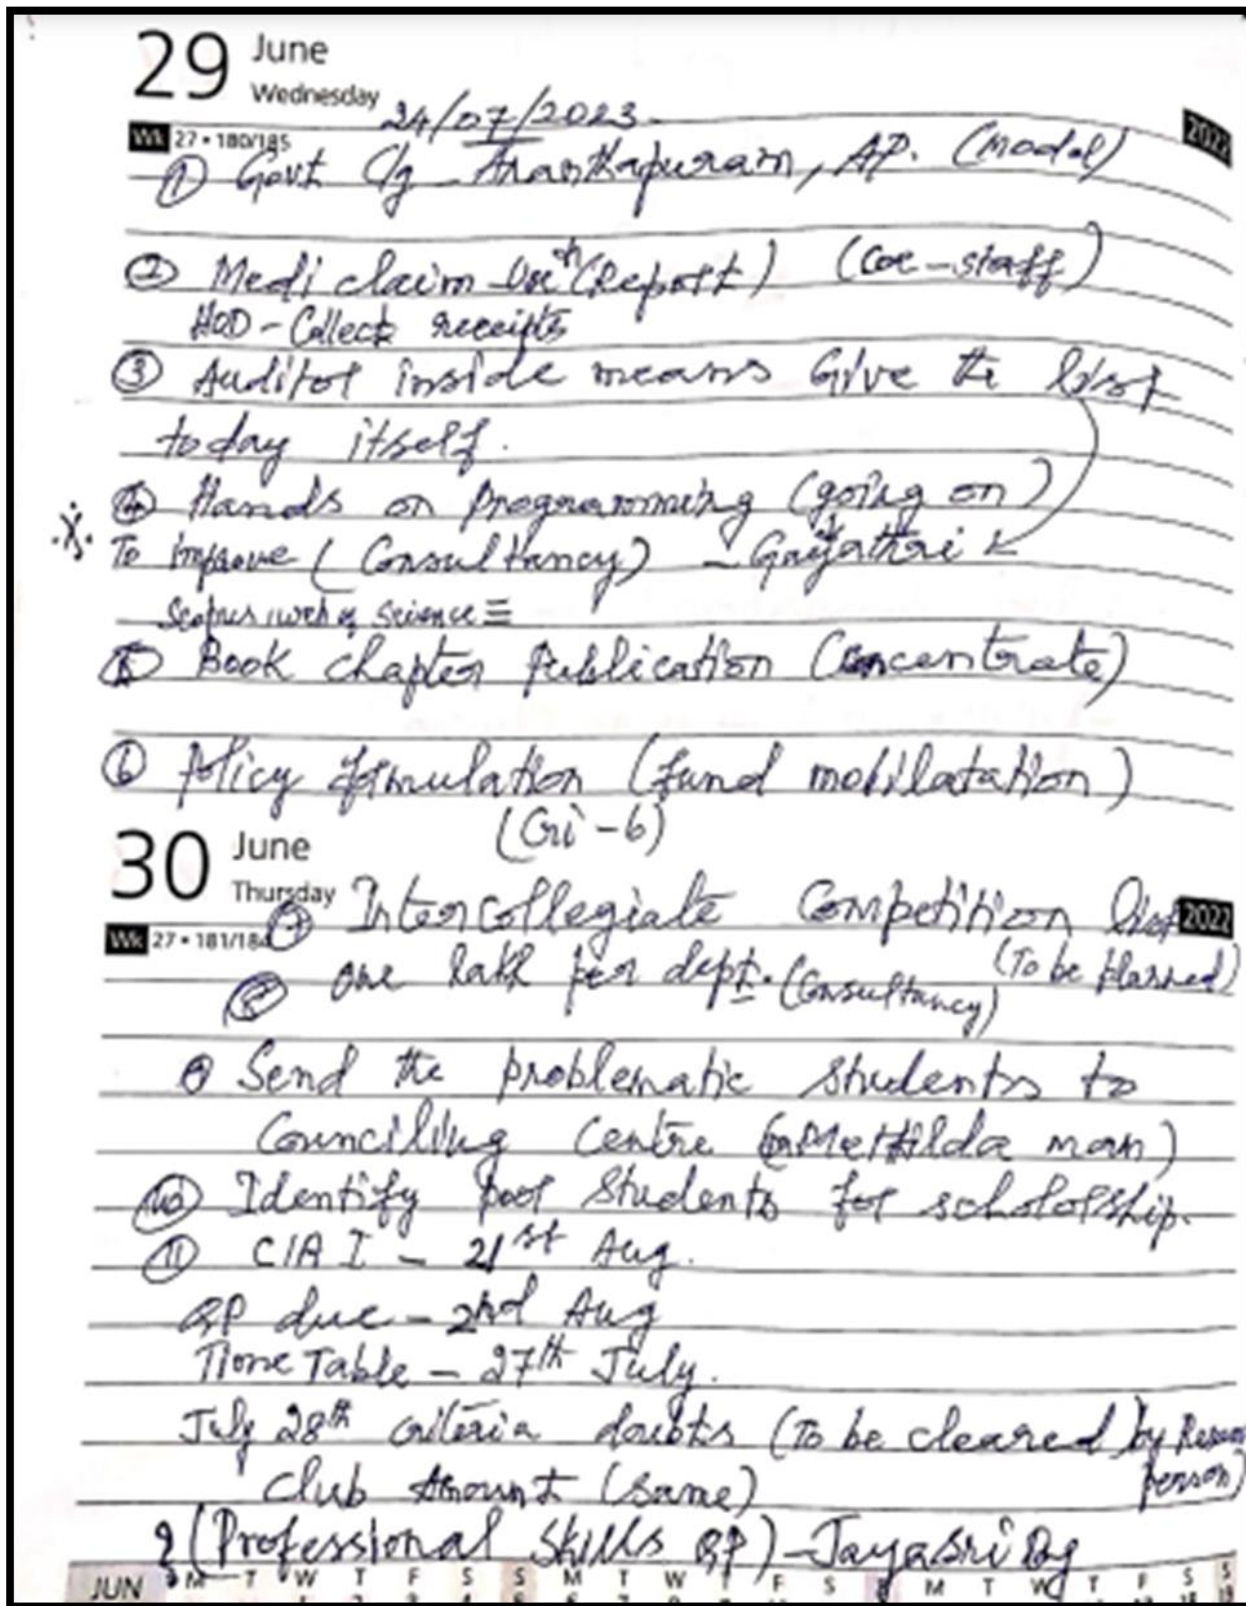 29 June
Wednesday
24/07/2023
Wk 27 • 180/185
2022
① Govt Clg - Ananthapuram, AP. (Model)
② Medi claim (Report) (Coe - staff)
HOD - Collect receipts
③ Auditor inside means Give the list
today itself.
④ Hands on Programming (going on)
To improve (Consultancy) - Gayathri
Scopus, web of science
⑤ Book chapter Publication (Concentrate)
⑥ Policy formulation (fund mobilatation)
(Cri - 6)
30 June
Thursday
⑦ Intercollegiate Competition list
2022
Wk 27 • 181/184
(To be planned)
⑧ One lakh per dept. (Consultancy)
⑨ Send the problematic students to
Counciling Centre mam)
⑩ Identify poor students for scholorship.
⑪ CIA I - 21st Aug.
QP due - 2nd Aug
Time Table - 27th July.
July 28th criteria doubts (To be cleared) by
person)
Club Amount (same)
(Professional Skills QP) - Jayasri
JUN M T W T F S S M T W T F S S M T W T F S S